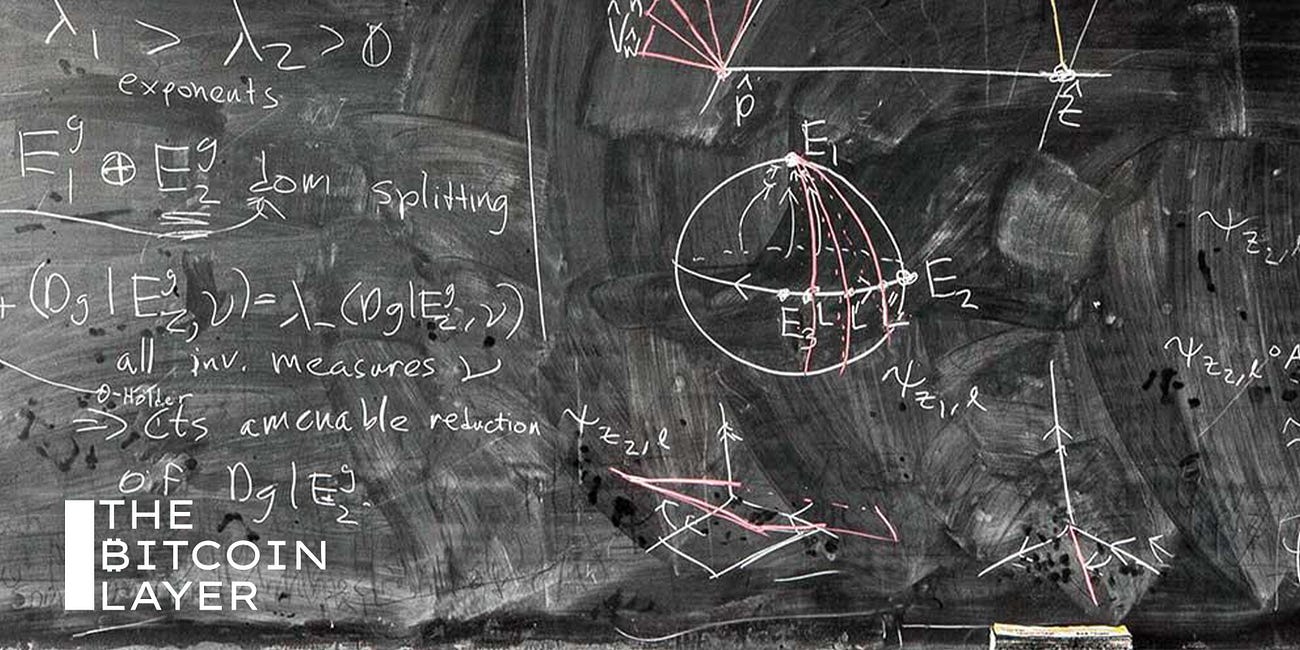 λ₁ > λ₂ > 0
exponents
E₁ᵍ ⊕ E₂ᵍ dom splitting
+ (Dg|E₂ᵍ, ν) = λ₋ (Dg|E₂ᵍ, ν)
all inv. measures ν
θ-Hölder
⇒ cts amenable reduction
of Dg|E₂ᵍ.
p̂
ẑ
E₁
E₂
E₃
ψ_{z₁,ℓ}
ψ_{z₂,ℓ}
ψ_{z₂,ℓ}
THE
BITCOIN
LAYER